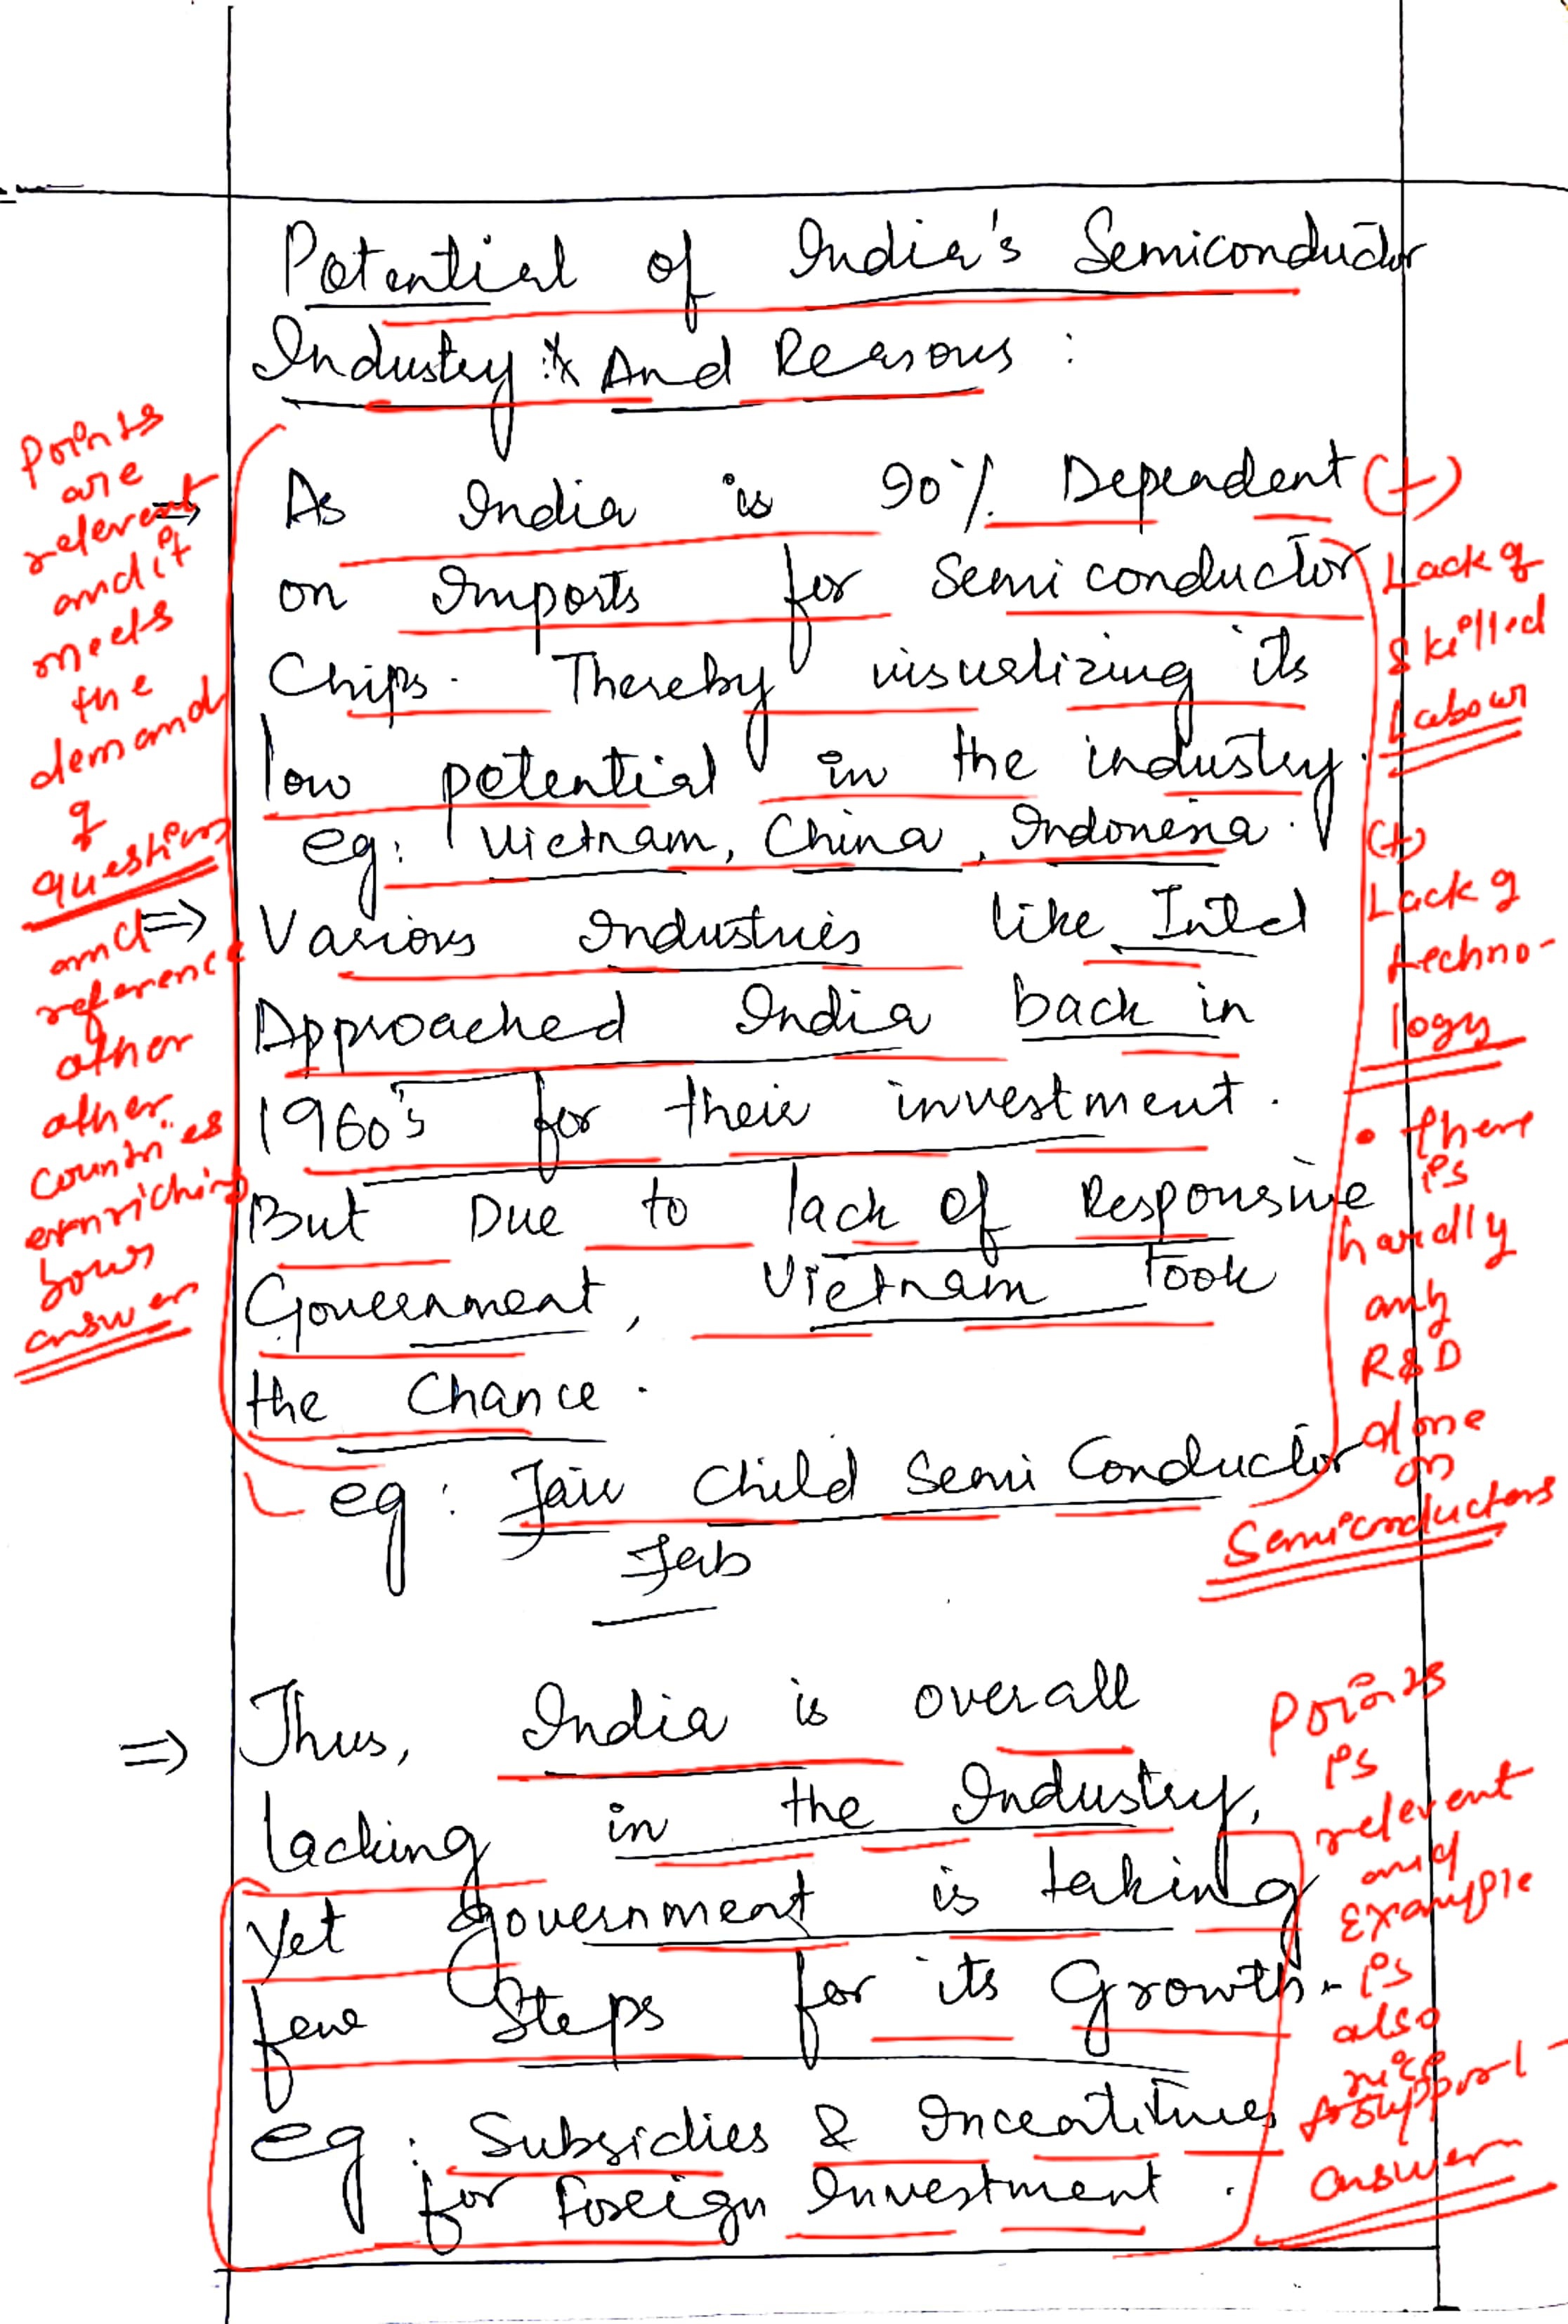 Potential of India's Semiconductor
Industry And Reasons :
⇒ As India is 90% Dependent
on Imports for Semi conductor
Chips. Thereby visualizing its
low potential in the industry.
eg: Vietnam, China, Indonesia.
⇒ Various Industries like Intel
Approached India back in
1960's for their investment.
But Due to lack of Responsive
Government, Vietnam took
the Chance.
eg: Fair Child Semi Conductor
Fab
⇒ Thus, India is overall
lacking in the Industry,
Yet government is taking
few Steps for its Growth.
eg: Subsidies & Incentitives
for Foreign Investment.
Points
are
relevant
and it
meets
the
demand
of
question
and
reference
other
other
countries
enriching
your
answer
(+)
Lack of
skilled
Labour
(+)
Lack of
techno-
logy
• there
is
hardly
any
R&D
done
on
Semiconductors
Points
is
relevent
and
Example
is
also
nice
support
answer